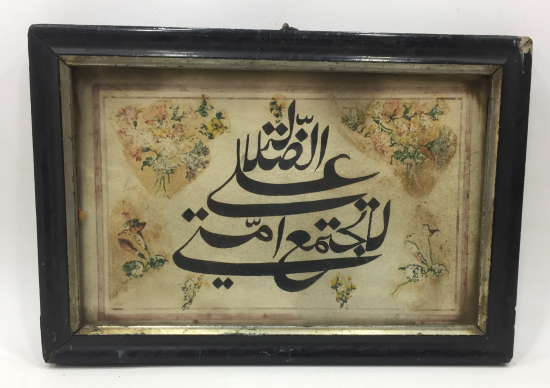 لا تجتمع امّتي
على
الضّلالة